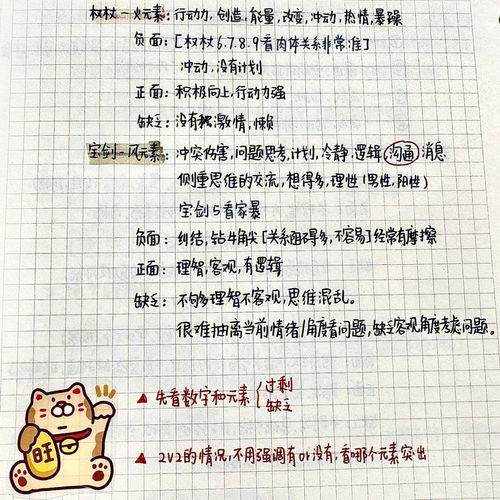 权杖－火元素：行动力，创造，能量，改变，冲动，热情，暴躁
负面：[权杖6.7.8.9看肉体关系非常准]
冲动，没有计划
正面：积极向上，行动力强
缺乏：没有激情，懒
宝剑－风元素：冲突伤害，问题思考，计划，冷静，逻辑，沟通，消息
侧重思维的交流，想得多，理性（男性，阳性）
宝剑5看家暴
负面：纠结，钻牛角尖[关系困难得多，不容易]经常有摩擦
正面：理智，客观，有逻辑
缺乏：不够理智不客观，思维混乱。
很难抽离当前情绪/角度看问题，缺乏客观角度考虑问题。
▲先看数字和元素{过剩
缺乏
▲2V2的情况，不用强调有or没有，看哪个元素突出
旺